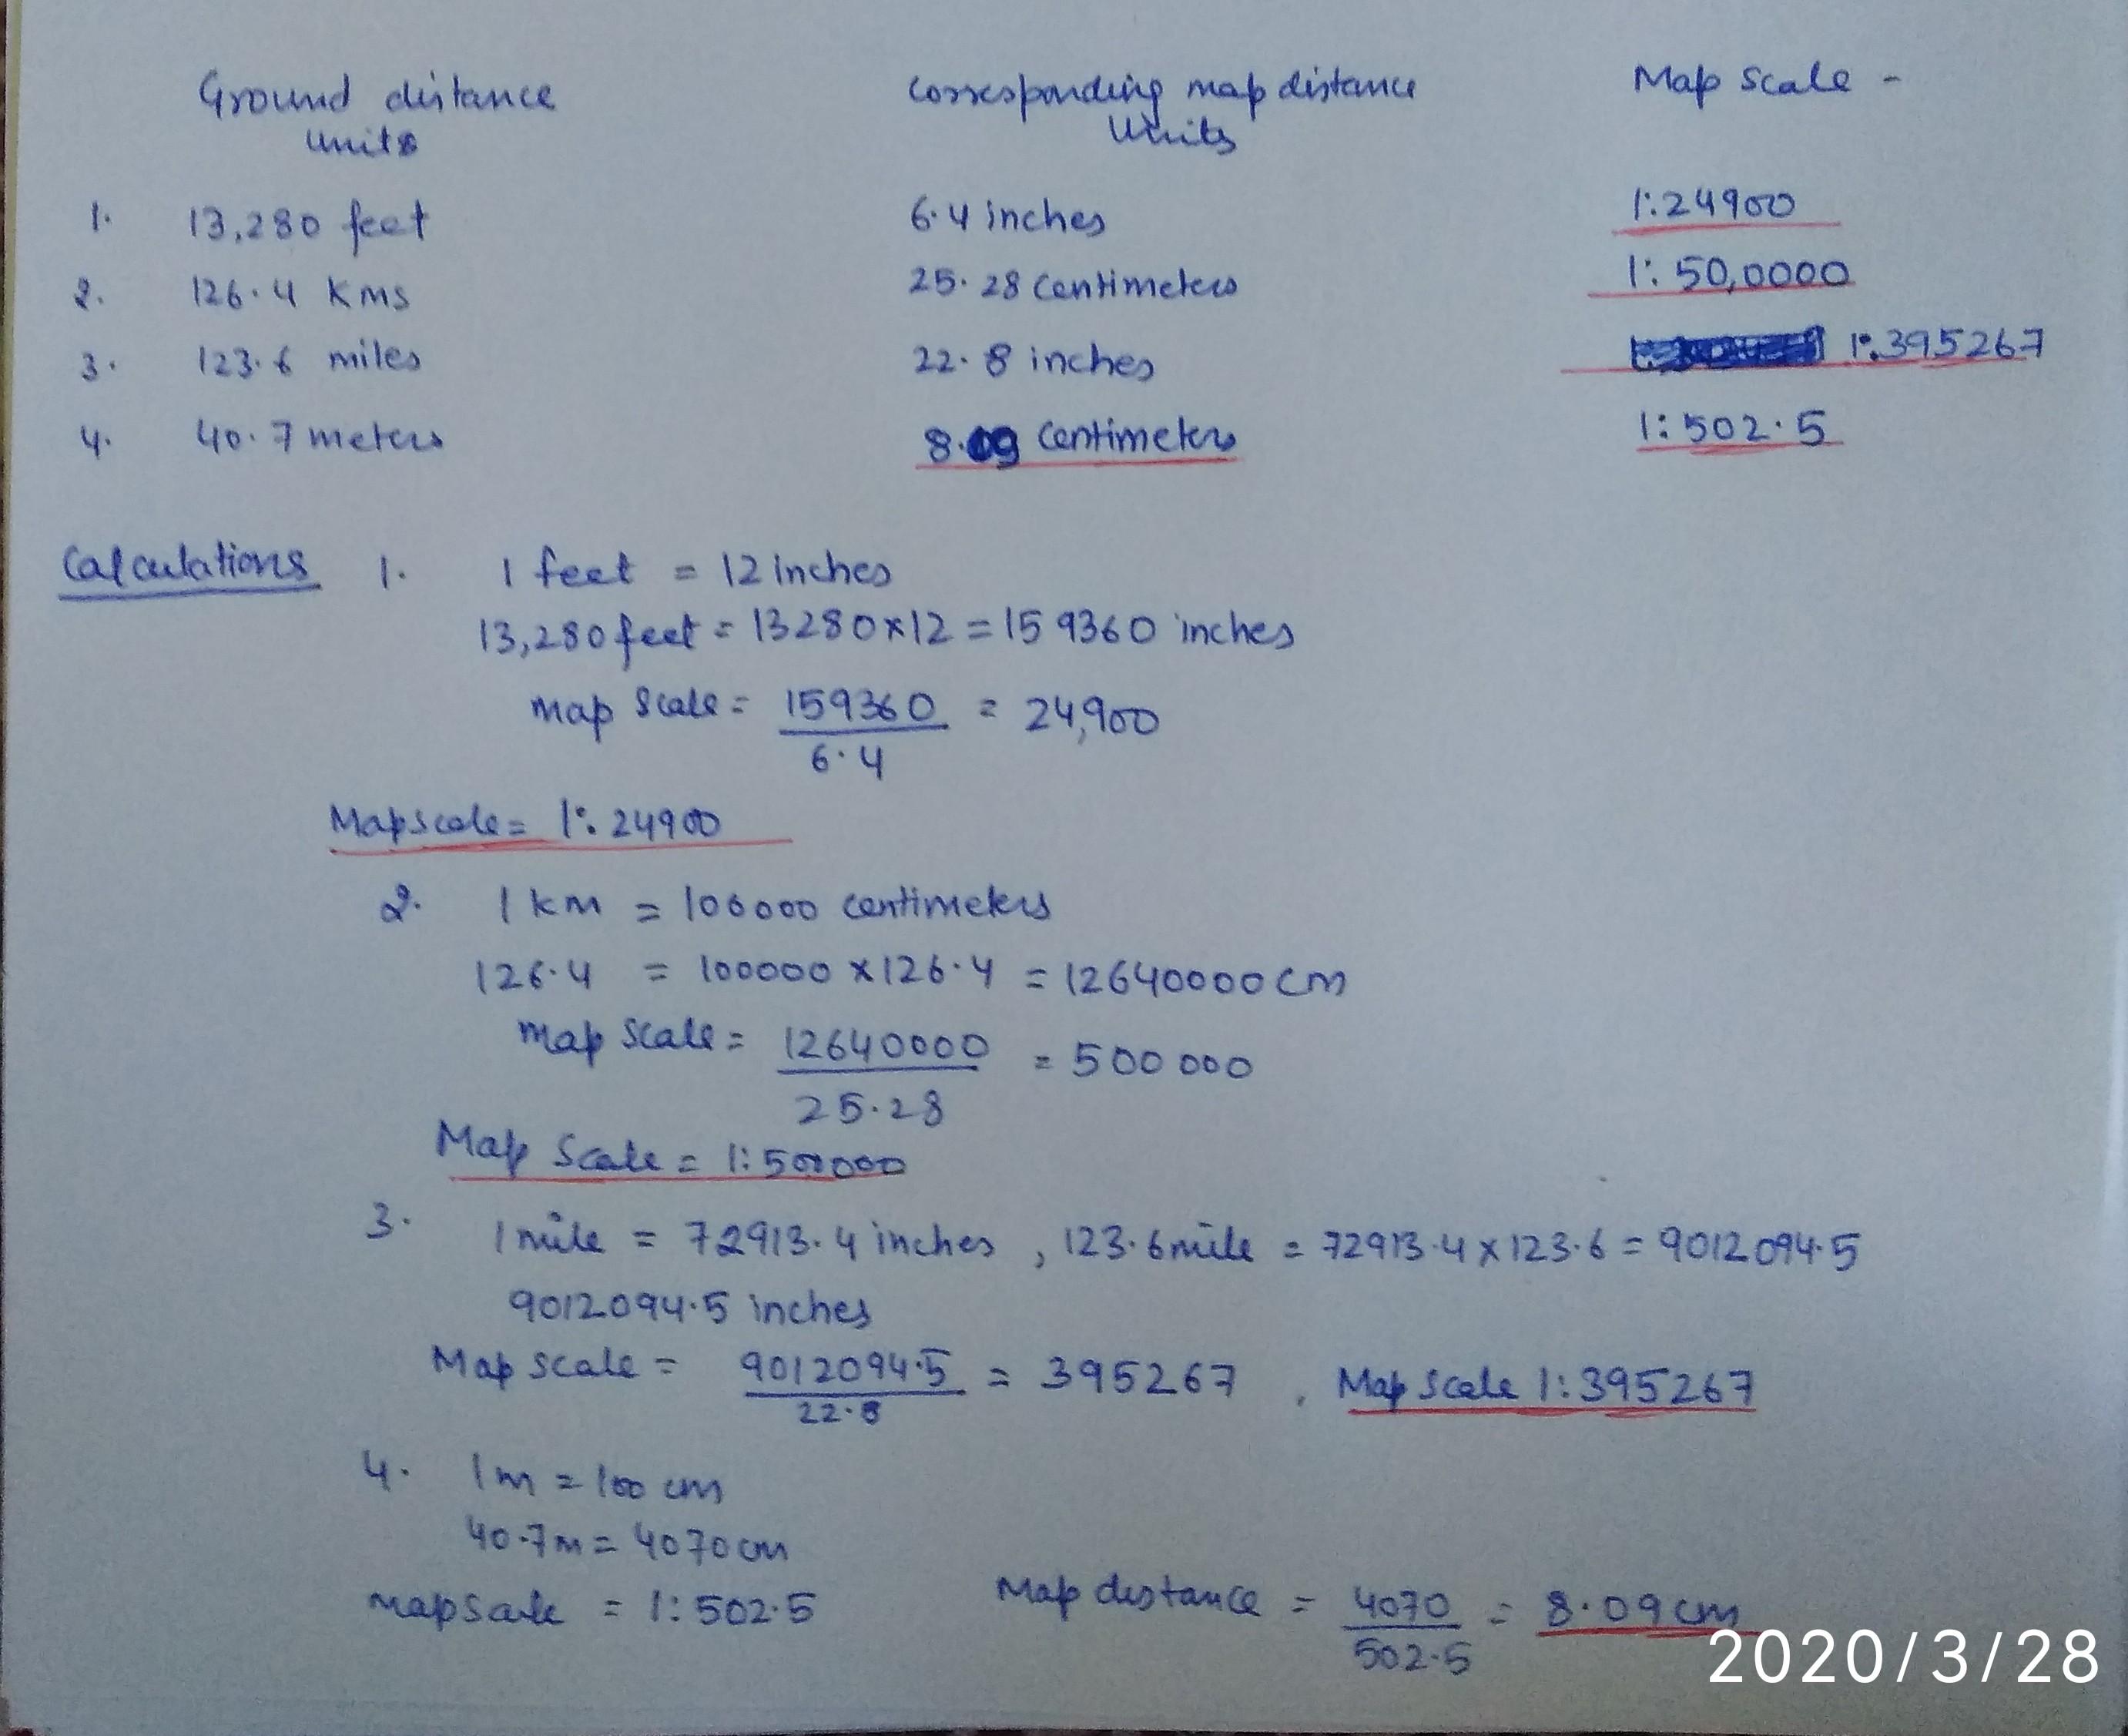 Ground distance corresponding map distance Map Scale -
units Units
1. 13,280 feet 6.4 inches 1:24900
2. 126.4 Kms 25.28 Centimeters 1:50,0000
3. 123.6 miles 22.8 inches 1:395267
4. 40.7 meters 8.09 Centimeters 1:502.5
Calculations 1. 1 feet = 12 inches
13,280 feet = 13280×12 = 159360 inches
map Scale = 159360 = 24,900
6.4
Mapscale = 1:24900
2. 1 km = 100000 centimeters
126.4 = 100000 × 126.4 = 12640000 cm
map scale = 12640000 = 500 000
25.28
Map Scale = 1:500000
3. 1 mile = 72913.4 inches , 123.6 mile = 72913.4 × 123.6 = 9012094.5
9012094.5 inches
Map scale = 9012094.5 = 395267 , Map scale 1:395267
22.8
4. 1m = 100 cm
40.7m = 4070 cm
mapscale = 1:502.5 Map distance = 4070 = 8.09 cm
502.5
2020/3/28